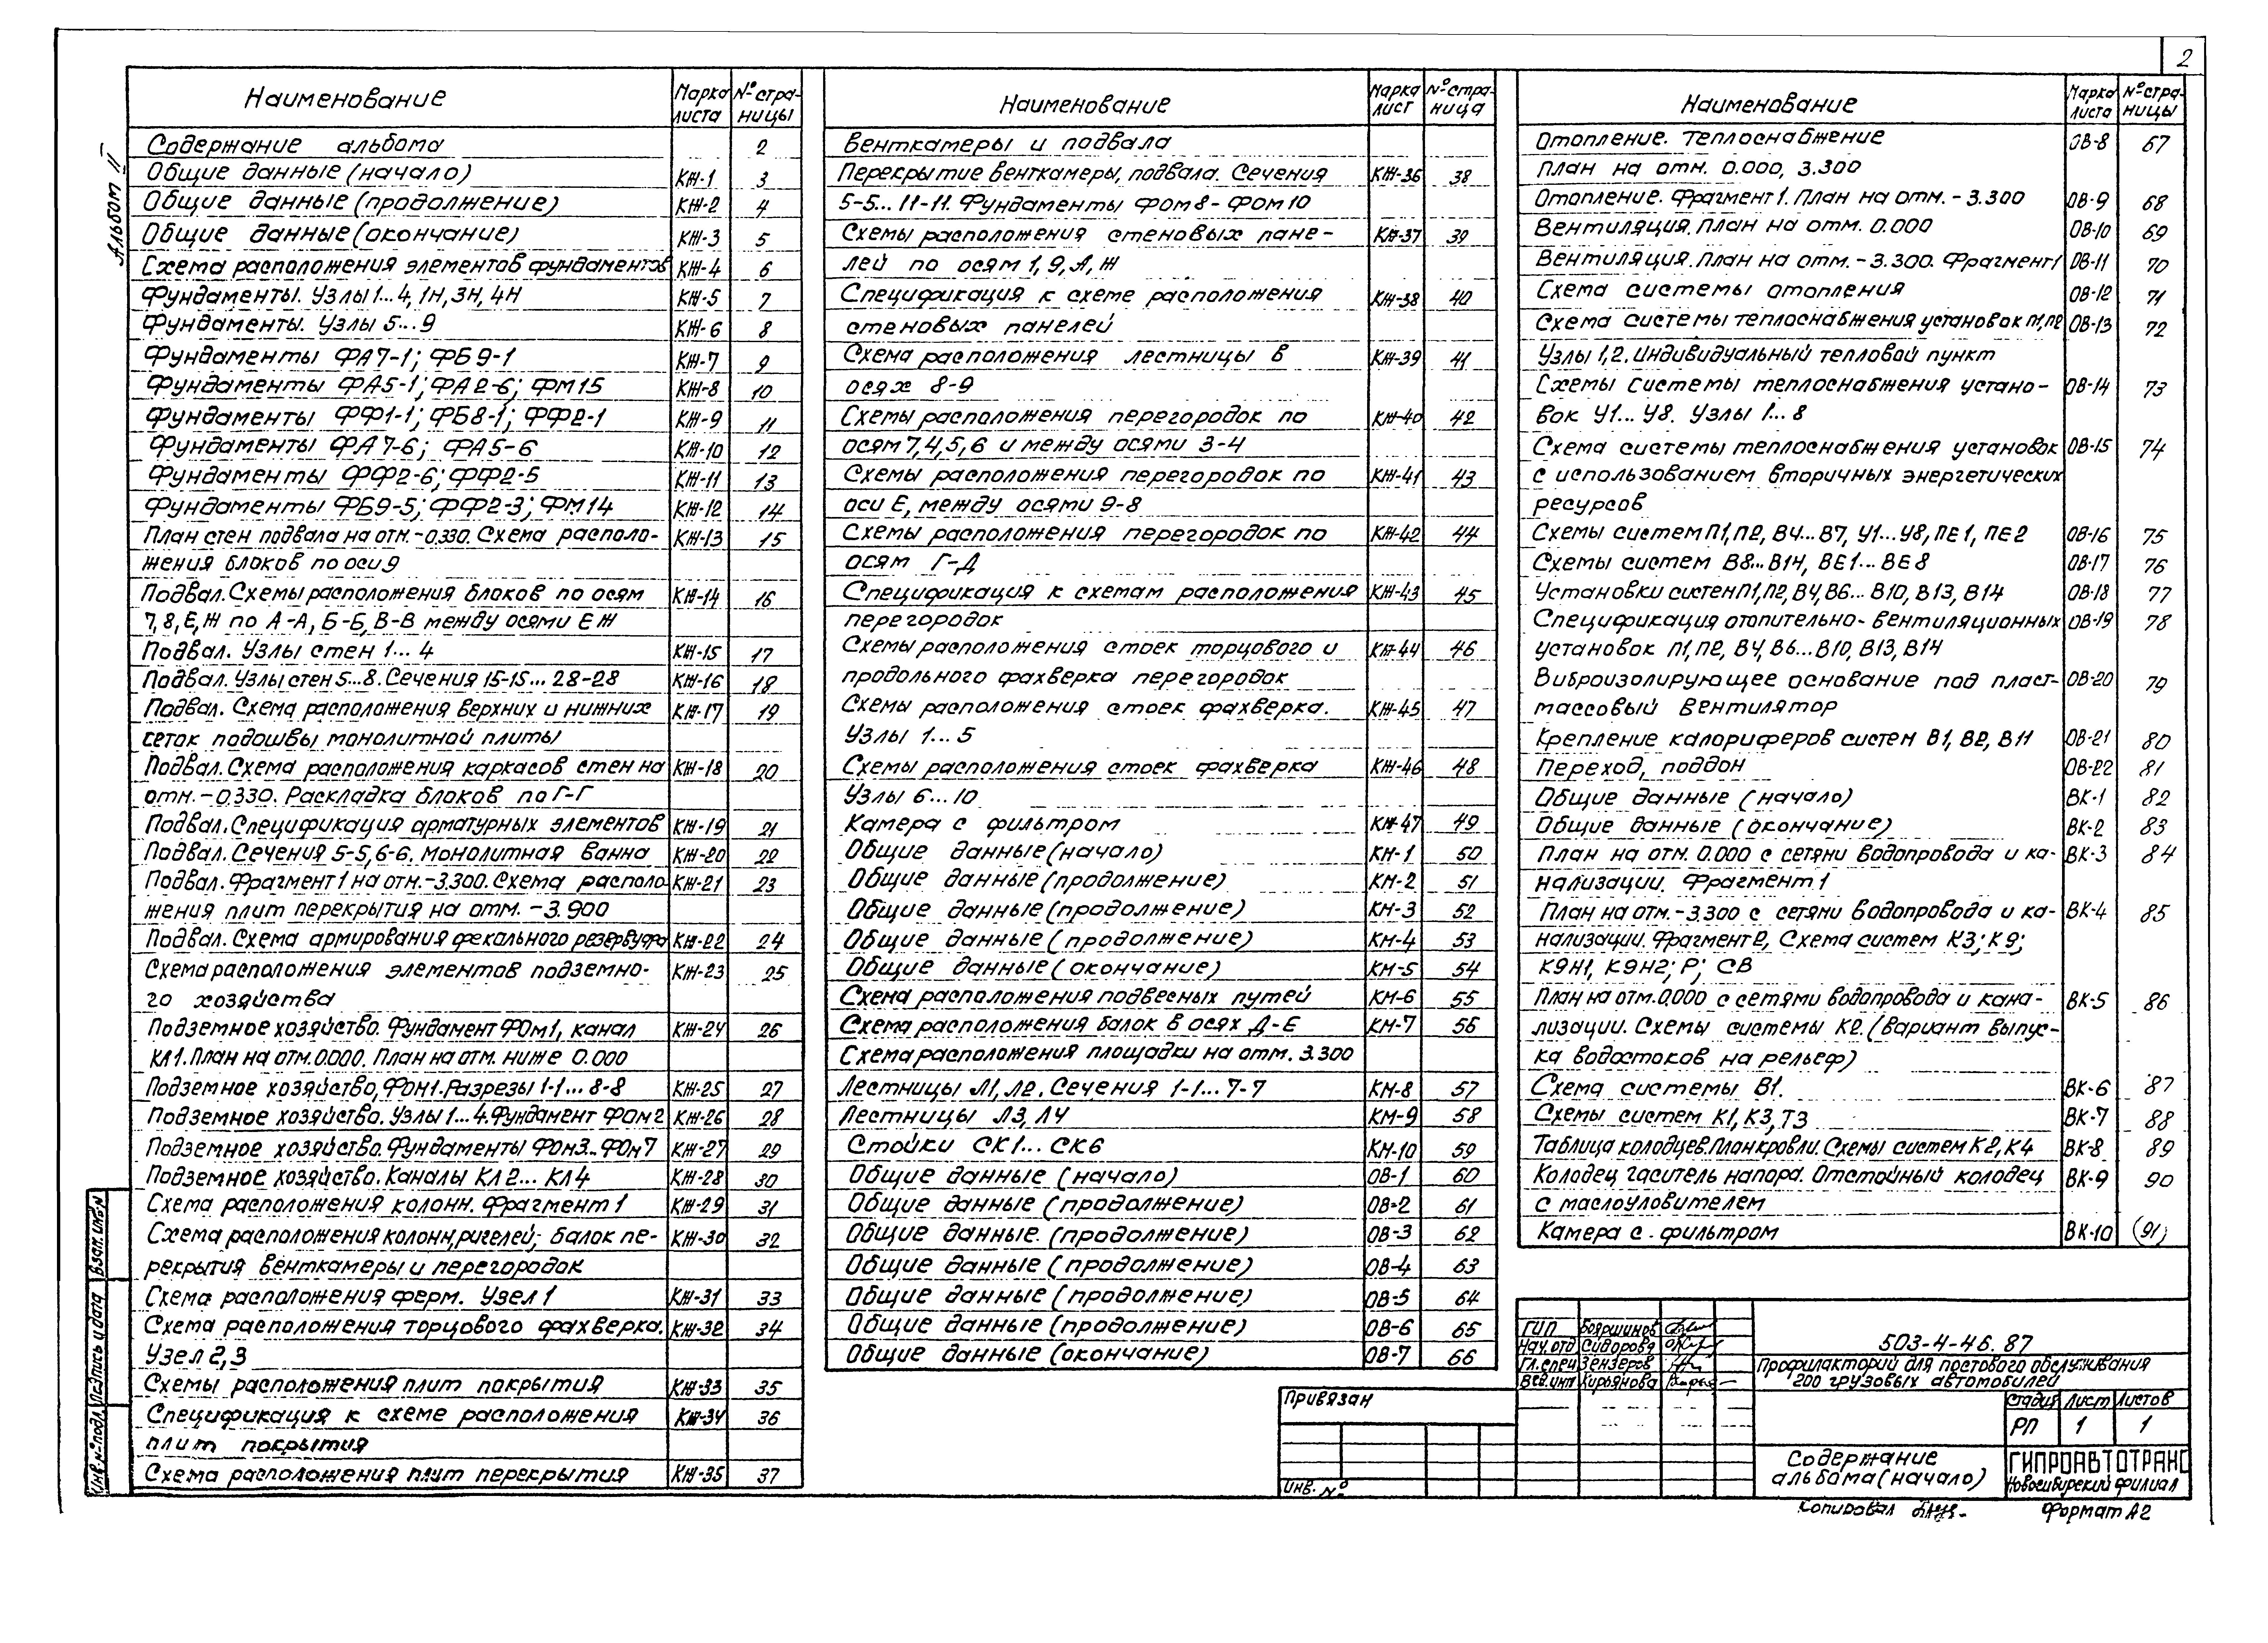 2
Альбом II
Наименование Марка листа № страницы
Содержание альбома 2
Общие данные (начало) КЖ-1 3
Общие данные (продолжение) КЖ-2 4
Общие данные (окончание) КЖ-3 5
Схема расположения элементов фундаментов КЖ-4 6
Фундаменты. Узлы 1...4, 1Н, 3Н, 4Н КЖ-5 7
Фундаменты. Узлы 5...9 КЖ-6 8
Фундаменты ФА7-1; ФБ9-1 КЖ-7 9
Фундаменты ФА5-1; ФА2-6; ФМ15 КЖ-8 10
Фундаменты ФФ1-1; ФБ8-1; ФФ2-1 КЖ-9 11
Фундаменты ФА7-6; ФА5-6 КЖ-10 12
Фундаменты ФФ2-6; ФФ2-5 КЖ-11 13
Фундаменты ФБ9-5; ФФ2-3; ФМ14 КЖ-12 14
План стен подвала на отм. -0.330. Схема располо- КЖ-13 15
жения блоков по оси 9
Подвал. Схемы расположения блоков по осям КЖ-14 16
7, 8, Е, Ж по А-А, Б-Б, В-В между осями Е Ж
Подвал. Узлы стен 1...4 КЖ-15 17
Подвал. Узлы стен 5...8. Сечения 15-15...28-28 КЖ-16 18
Подвал. Схема расположения верхних и нижних КЖ-17 19
сеток подошвы монолитной плиты
Подвал. Схема расположения каркасов стен на КЖ-18 20
отм. -0.330. Раскладка блоков по Г-Г
Подвал. Спецификация арматурных элементов КЖ-19 21
Подвал. Сечения 5-5, 6-6. Монолитная ванна КЖ-20 22
Подвал. Фрагмент 1 на отм. -3.300. Схема располо- КЖ-21 23
жения плит перекрытия на отм. -3.900
Подвал. Схема армирования фекального резервуара КЖ-22 24
Схема расположения элементов подземно- КЖ-23 25
го хозяйства
Подземное хозяйство. Фундамент ФОм1, канал КЖ-24 26
КЛ1. План на отм. 0.000. План на отм. ниже 0.000
Подземное хозяйство, ФОм1. Разрезы 1-1...8-8 КЖ-25 27
Подземное хозяйство. Узлы 1...4. Фундамент ФОм2 КЖ-26 28
Подземное хозяйство. Фундаменты ФОм3...ФОм7 КЖ-27 29
Подземное хозяйство. Каналы КЛ2...КЛ4 КЖ-28 30
Схема расположения колонн. Фрагмент 1 КЖ-29 31
Схема расположения колонн, ригелей, балок пе- КЖ-30 32
рекрытия венткамеры и перегородок
Схема расположения ферм. Узел 1 КЖ-31 33
Схема расположения торцового фахверка. КЖ-32 34
Узел 2, 3
Схемы расположения плит покрытия КЖ-33 35
Спецификация к схеме расположения КЖ-34 36
плит покрытия
Схема расположения плит перекрытия КЖ-35 37
Наименование Марка лист № страница
венткамеры и подвала
Перекрытие венткамеры, подвала. Сечения КЖ-36 38
5-5...11-11. Фундаменты ФОм8-ФОм10
Схемы расположения стеновых пане- КЖ-37 39
лей по осям 1, 9, А, Ж
Спецификация к схеме расположения КЖ-38 40
стеновых панелей
Схема расположения лестницы в КЖ-39 41
осях 8-9
Схемы расположения перегородок по КЖ-40 42
осям 7, 4, 5, 6 и между осями 3-4
Схемы расположения перегородок по КЖ-41 43
оси Е, между осями 9-8
Схемы расположения перегородок по КЖ-42 44
осям Г-Д
Спецификация к схемам расположения КЖ-43 45
перегородок
Схемы расположения стоек торцового и КЖ-44 46
продольного фахверка перегородок
Схемы расположения стоек фахверка. КЖ-45 47
Узлы 1...5
Схемы расположения стоек фахверка КЖ-46 48
Узлы 6...10
Камера с фильтром КЖ-47 49
Общие данные (начало) КМ-1 50
Общие данные (продолжение) КМ-2 51
Общие данные (продолжение) КМ-3 52
Общие данные (продолжение) КМ-4 53
Общие данные (окончание) КМ-5 54
Схема расположения подвесных путей КМ-6 55
Схема расположения балок в осях Д-Е КМ-7 56
Схема расположения площадки на отм. 3.300
Лестницы Л1, Л2. Сечения 1-1...7-7 КМ-8 57
Лестницы Л3, Л4 КМ-9 58
Стойки СК1...СК6 КМ-10 59
Общие данные (начало) ОВ-1 60
Общие данные (продолжение) ОВ-2 61
Общие данные. (продолжение) ОВ-3 62
Общие данные (продолжение) ОВ-4 63
Общие данные (продолжение) ОВ-5 64
Общие данные (продолжение) ОВ-6 65
Общие данные (окончание) ОВ-7 66
Наименование Марка листа № страницы
Отопление. Теплоснабжение ОВ-8 67
План на отм. 0.000, 3.300
Отопление. Фрагмент 1. План на отм. -3.300 ОВ-9 68
Вентиляция. План на отм. 0.000 ОВ-10 69
Вентиляция. План на отм. -3.300. Фрагмент 1 ОВ-11 70
Схема системы отопления ОВ-12 71
Схема системы теплоснабжения установок П1, П2 ОВ-13 72
Узлы 1, 2. Индивидуальный тепловой пункт
Схемы системы теплоснабжения устано- ОВ-14 73
вок У1...У8. Узлы 1...8
Схема системы теплоснабжения установок ОВ-15 74
с использованием вторичных энергетических
ресурсов
Схемы систем П1, П2, В4...В7, У1...У8, ПЕ1, ПЕ2 ОВ-16 75
Схемы систем В8...В14, ВЕ1...ВЕ8 ОВ-17 76
Установки систем П1, П2, В4, В6...В10, В13, В14 ОВ-18 77
Спецификация отопительно-вентиляционных ОВ-19 78
установок П1, П2, В4, В6...В10, В13, В14
Виброизолирующее основание под пласт- ОВ-20 79
массовый вентилятор
Крепление калориферов систем В1, В2, В11 ОВ-21 80
Переход, поддон ОВ-22 81
Общие данные (начало) ВК-1 82
Общие данные (окончание) ВК-2 83
План на отм. 0.000 с сетями водопровода и ка- ВК-3 84
нализации. Фрагмент 1
План на отм. -3.300 с сетями водопровода и ка- ВК-4 85
нализации. Фрагмент 2, Схема систем К3; К9;
К9Н1, К9Н2; Р; СВ
План на отм. 0.000 с сетями водопровода и кана- ВК-5 86
лизации. Схемы системы К2. (вариант выпус-
ка водостоков на рельеф)
Схема системы В1. ВК-6 87
Схемы систем К1, К3, Т3 ВК-7 88
Таблица колодцев. План кровли. Схемы систем К2, К4 ВК-8 89
Колодец гаситель напора. Отстойный колодец ВК-9 90
с маслоуловителем
Камера с фильтром ВК-10 (91)
ГИП Бояршинов
Нач. отд Сидорова
Гл. спец Зензеров
Вед. инж Кирьянова
503-4-46.87
Профилакторий для постового обслуживания
200 грузовых автомобилей
Стадия Лист Листов
РП 1 1
Содержание
альбома (начало)
ГИПРОАВТОТРАНС
Новосибирский филиал
Привязан
Инв. №
Копировал
Формат А2
Взам. инв. №
Подпись и дата
Инв. № подл.